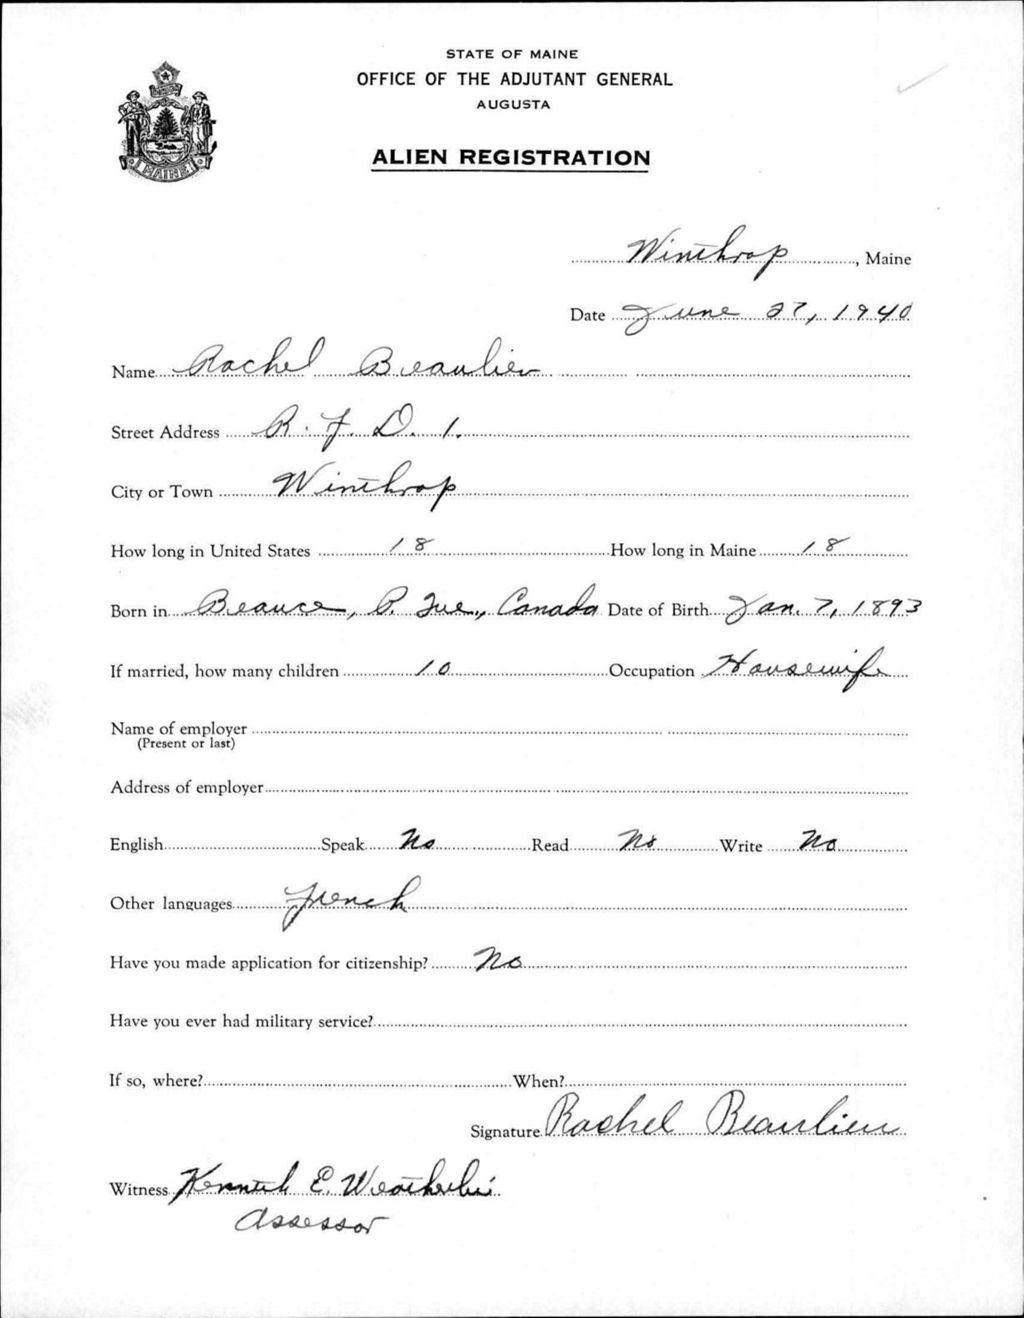 STATE OF MAINE
OFFICE OF THE ADJUTANT GENERAL
AUGUSTA
ALIEN REGISTRATION
MAINE
Winthrop, Maine
Date June 27, 1940
Name Rachel Beaulieu
Street Address R. F. D. 1.
City or Town Winthrop
How long in United States 18 How long in Maine 18
Born in Beauce, P. Que., Canada Date of Birth Jan. 7, 1893
If married, how many children 10 Occupation Housewife
Name of employer
(Present or last)
Address of employer
English Speak No Read No Write No
Other languages French
Have you made application for citizenship? No
Have you ever had military service?
If so, where? When?
Signature Rachel Beaulieu
Witness Kenneth E.
Assessor